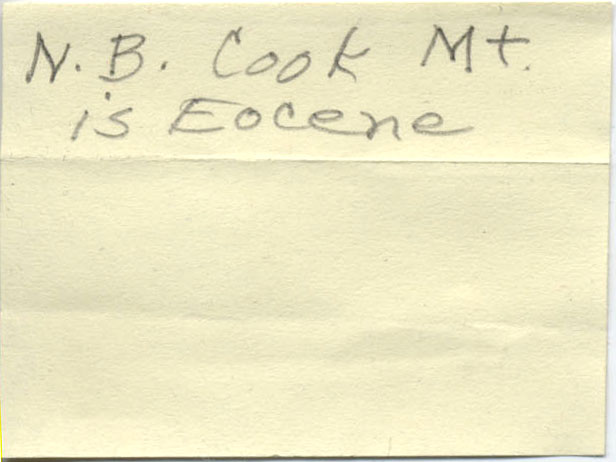 N.B. Cook Mt.
is Eocene